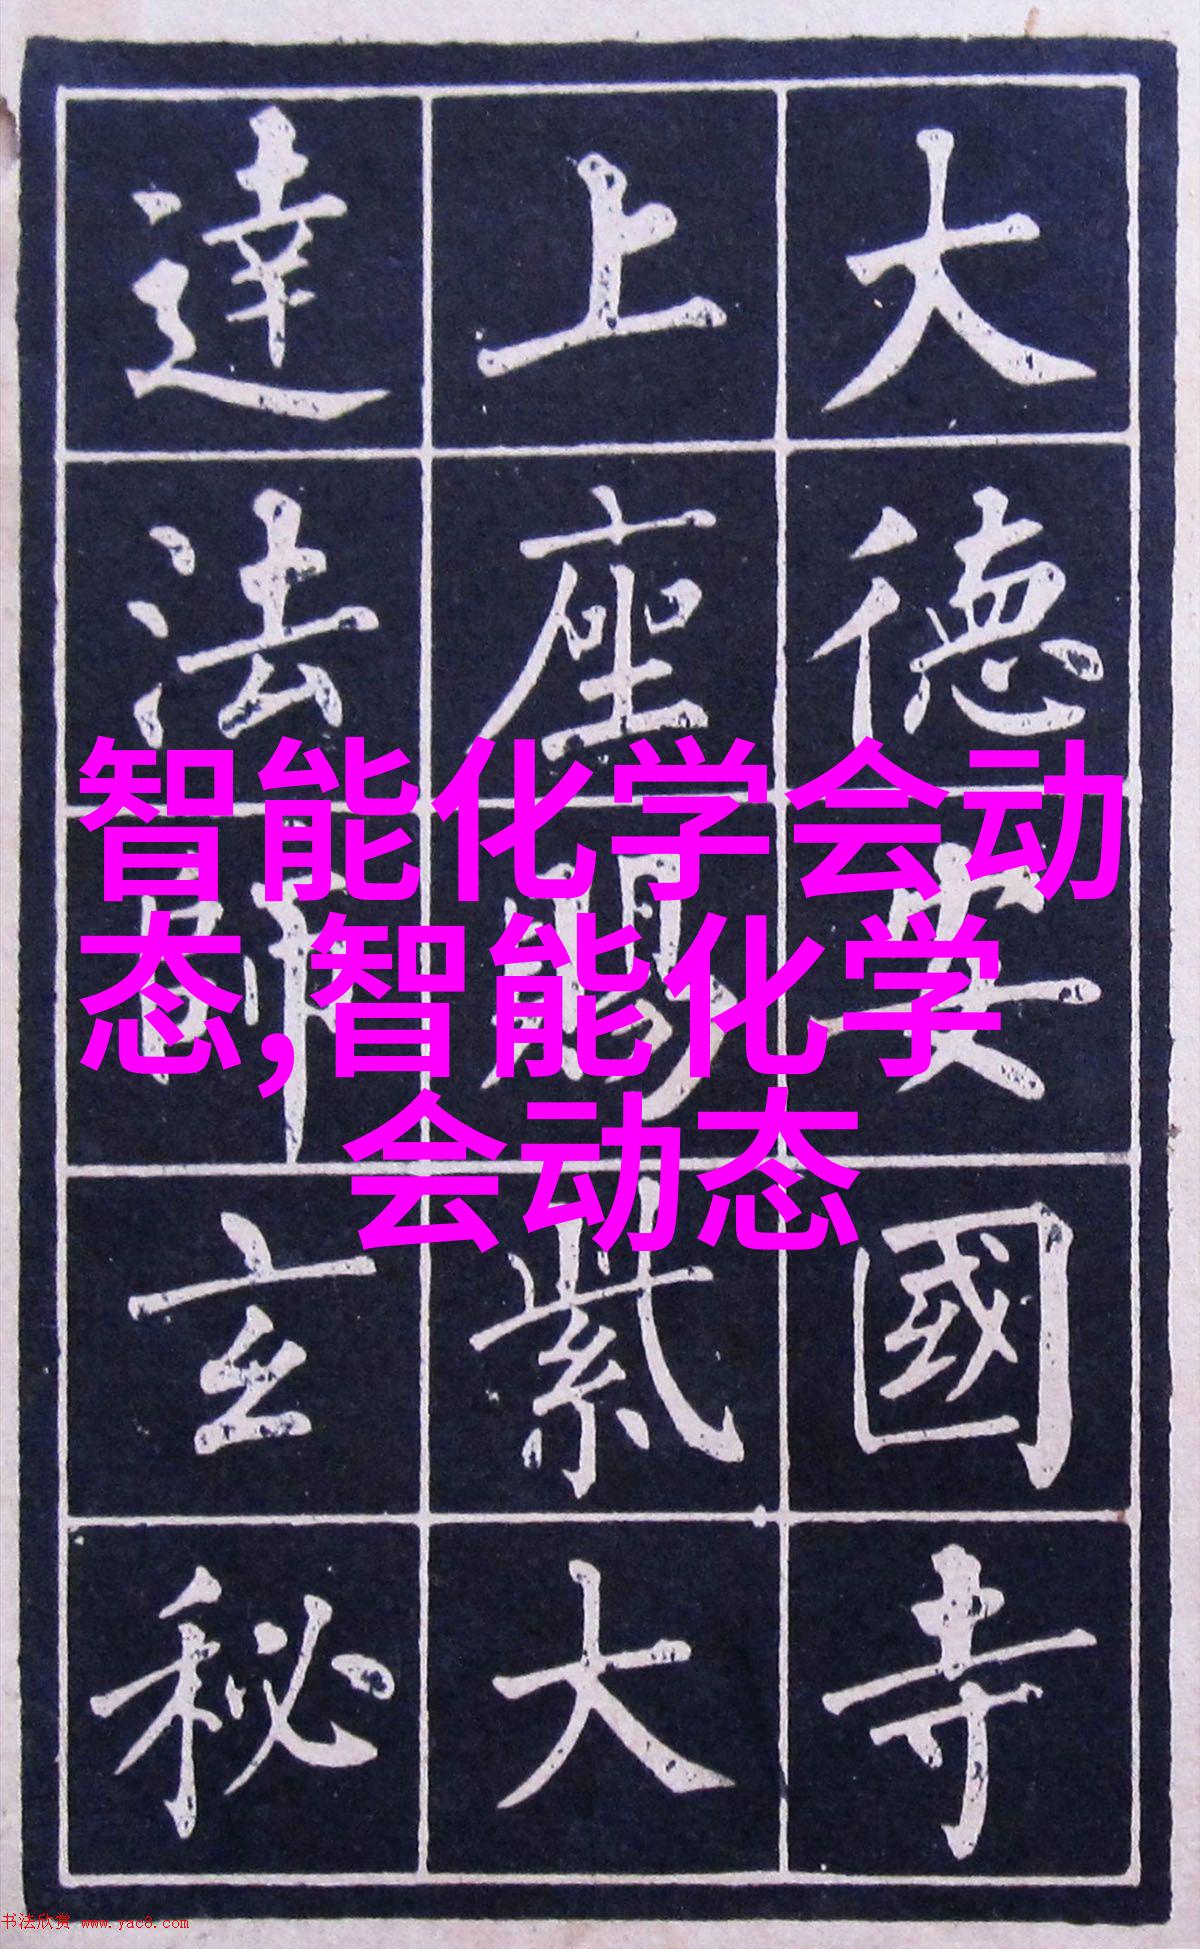 大德安國寺
上座賜紫大
達法師玄秘
智能化学会动
态,智能化学
会动态
书法欣赏 www.yac8.com